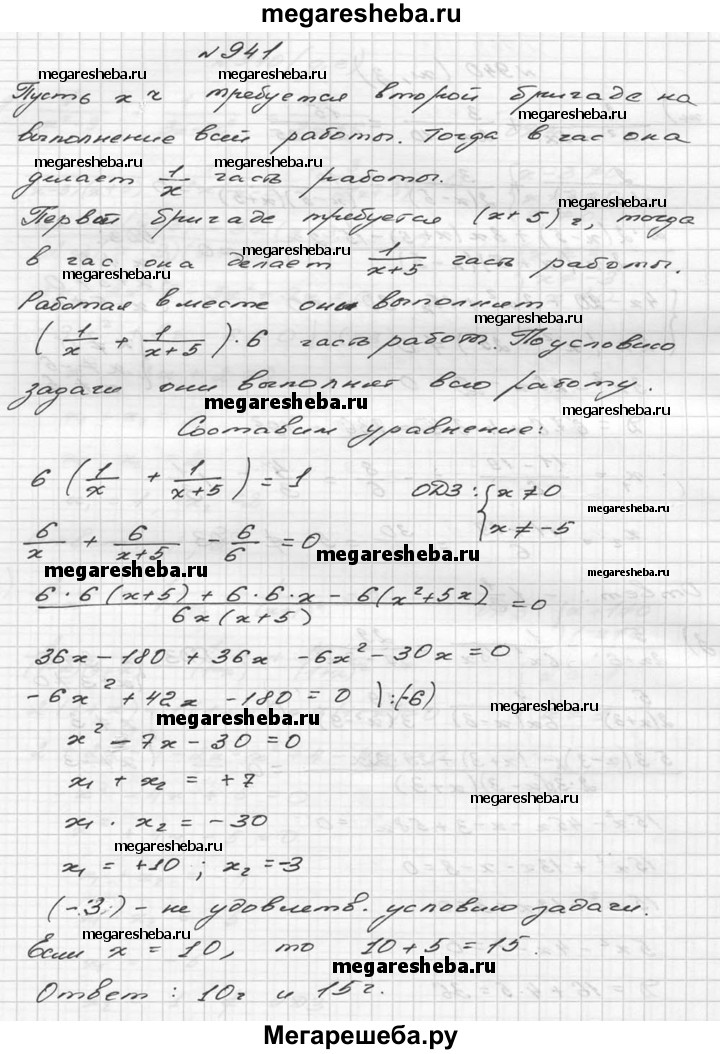 megaresheba.ru
№941
megaresheba.ru megaresheba.ru
Пусть x ч требуется второй бригаде на
megaresheba.ru
выполнение всей работы. Тогда в час она
megaresheba.ru megaresheba.ru
делает 1/x часть работы.
megaresheba.ru
Первой бригаде требуется (x+5) ч, тогда
megaresheba.ru
в час она делает 1/(x+5) часть работы.
megaresheba.ru
Работая вместе они выполнят
megaresheba.ru
(1/x + 1/(x+5))·6 часть работ. По условию
задачи они выполняет всю работу.
megaresheba.ru megaresheba.ru
Составим уравнение:
6(1/x + 1/(x+5)) = 1 ОДЗ: {x≠0
megaresheba.ru
6/x + 6/(x+5) - 6/6 = 0 {x≠-5
megaresheba.ru
megaresheba.ru megaresheba.ru
(6·6(x+5) + 6·6·x - 6(x²+5x))/(6x(x+5)) = 0
36x - 180 + 36x - 6x² - 30x = 0
-6x² + 42x - 180 = 0 ):(-6)
megaresheba.ru megaresheba.ru
x² - 7x - 30 = 0
x₁ + x₂ = +7
megaresheba.ru
x₁ · x₂ = -30
x₁ = +10 ; x₂ = -3
(-3) - не удовлетв. условию задачи.
megaresheba.ru
Если x = 10, то 10 + 5 = 15.
megaresheba.ru
Ответ: 10ч и 15ч.
Мегарешеба.ру